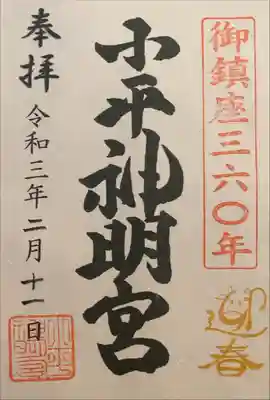 御鎮座三六〇年
迎春
小平神明宮
奉拝
令和三年二月十一日